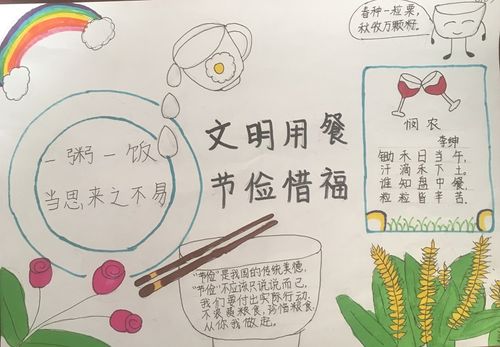 春种一粒粟，
秋收万颗籽。
文明用餐
节俭惜福
一粥一饭
当思来之不易
悯农
李绅
锄禾日当午，
汗滴禾下土。
谁知盘中餐，
粒粒皆辛苦.
"节俭"是我国的传统美德，
"节俭"不应该只说说而已，
我们要付出实际行动，
不浪费粮食，珍惜粮食，
从你我做起。